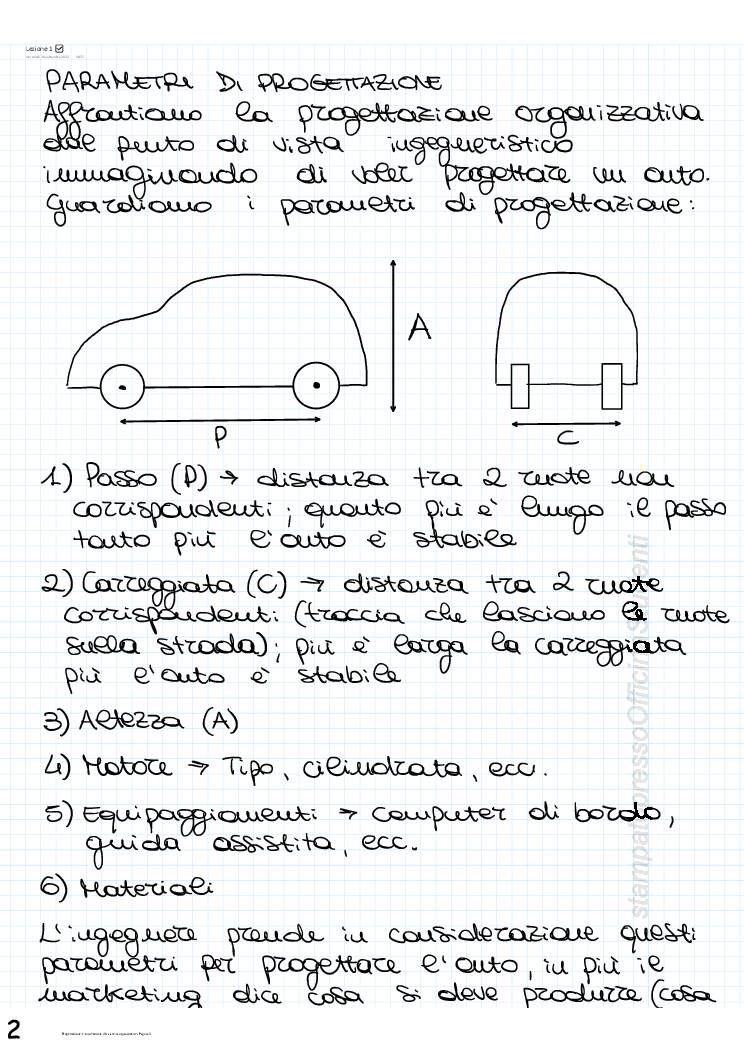 Lezione 1
PARAMETRI DI PROGETTAZIONE
Affrontiamo la progettazione organizzativa
dal punto di vista ingegneristico
immaginando di voler progettare un auto.
Guardiamo i parametri di progettazione:
A
P
C
1) Passo (P) → distanza tra 2 ruote non
corrispondenti; quanto più è lungo il passo
tanto più l'auto è stabile
2) Carreggiata (C) → distanza tra 2 ruote
corrispondenti (traccia che lasciano le ruote
sulla strada); più è larga la carreggiata
più l'auto è stabile
3) Altezza (A)
4) Motore → Tipo, cilindrata, ecc.
5) Equipaggiamenti → computer di bordo,
guida assistita, ecc.
6) Materiali
L'ingegnere prende in considerazione questi
parametri per progettare l'auto, in più il
marketing dice cosa si deve produrre (cosa
stampatopressoOfficinaStudenti
2